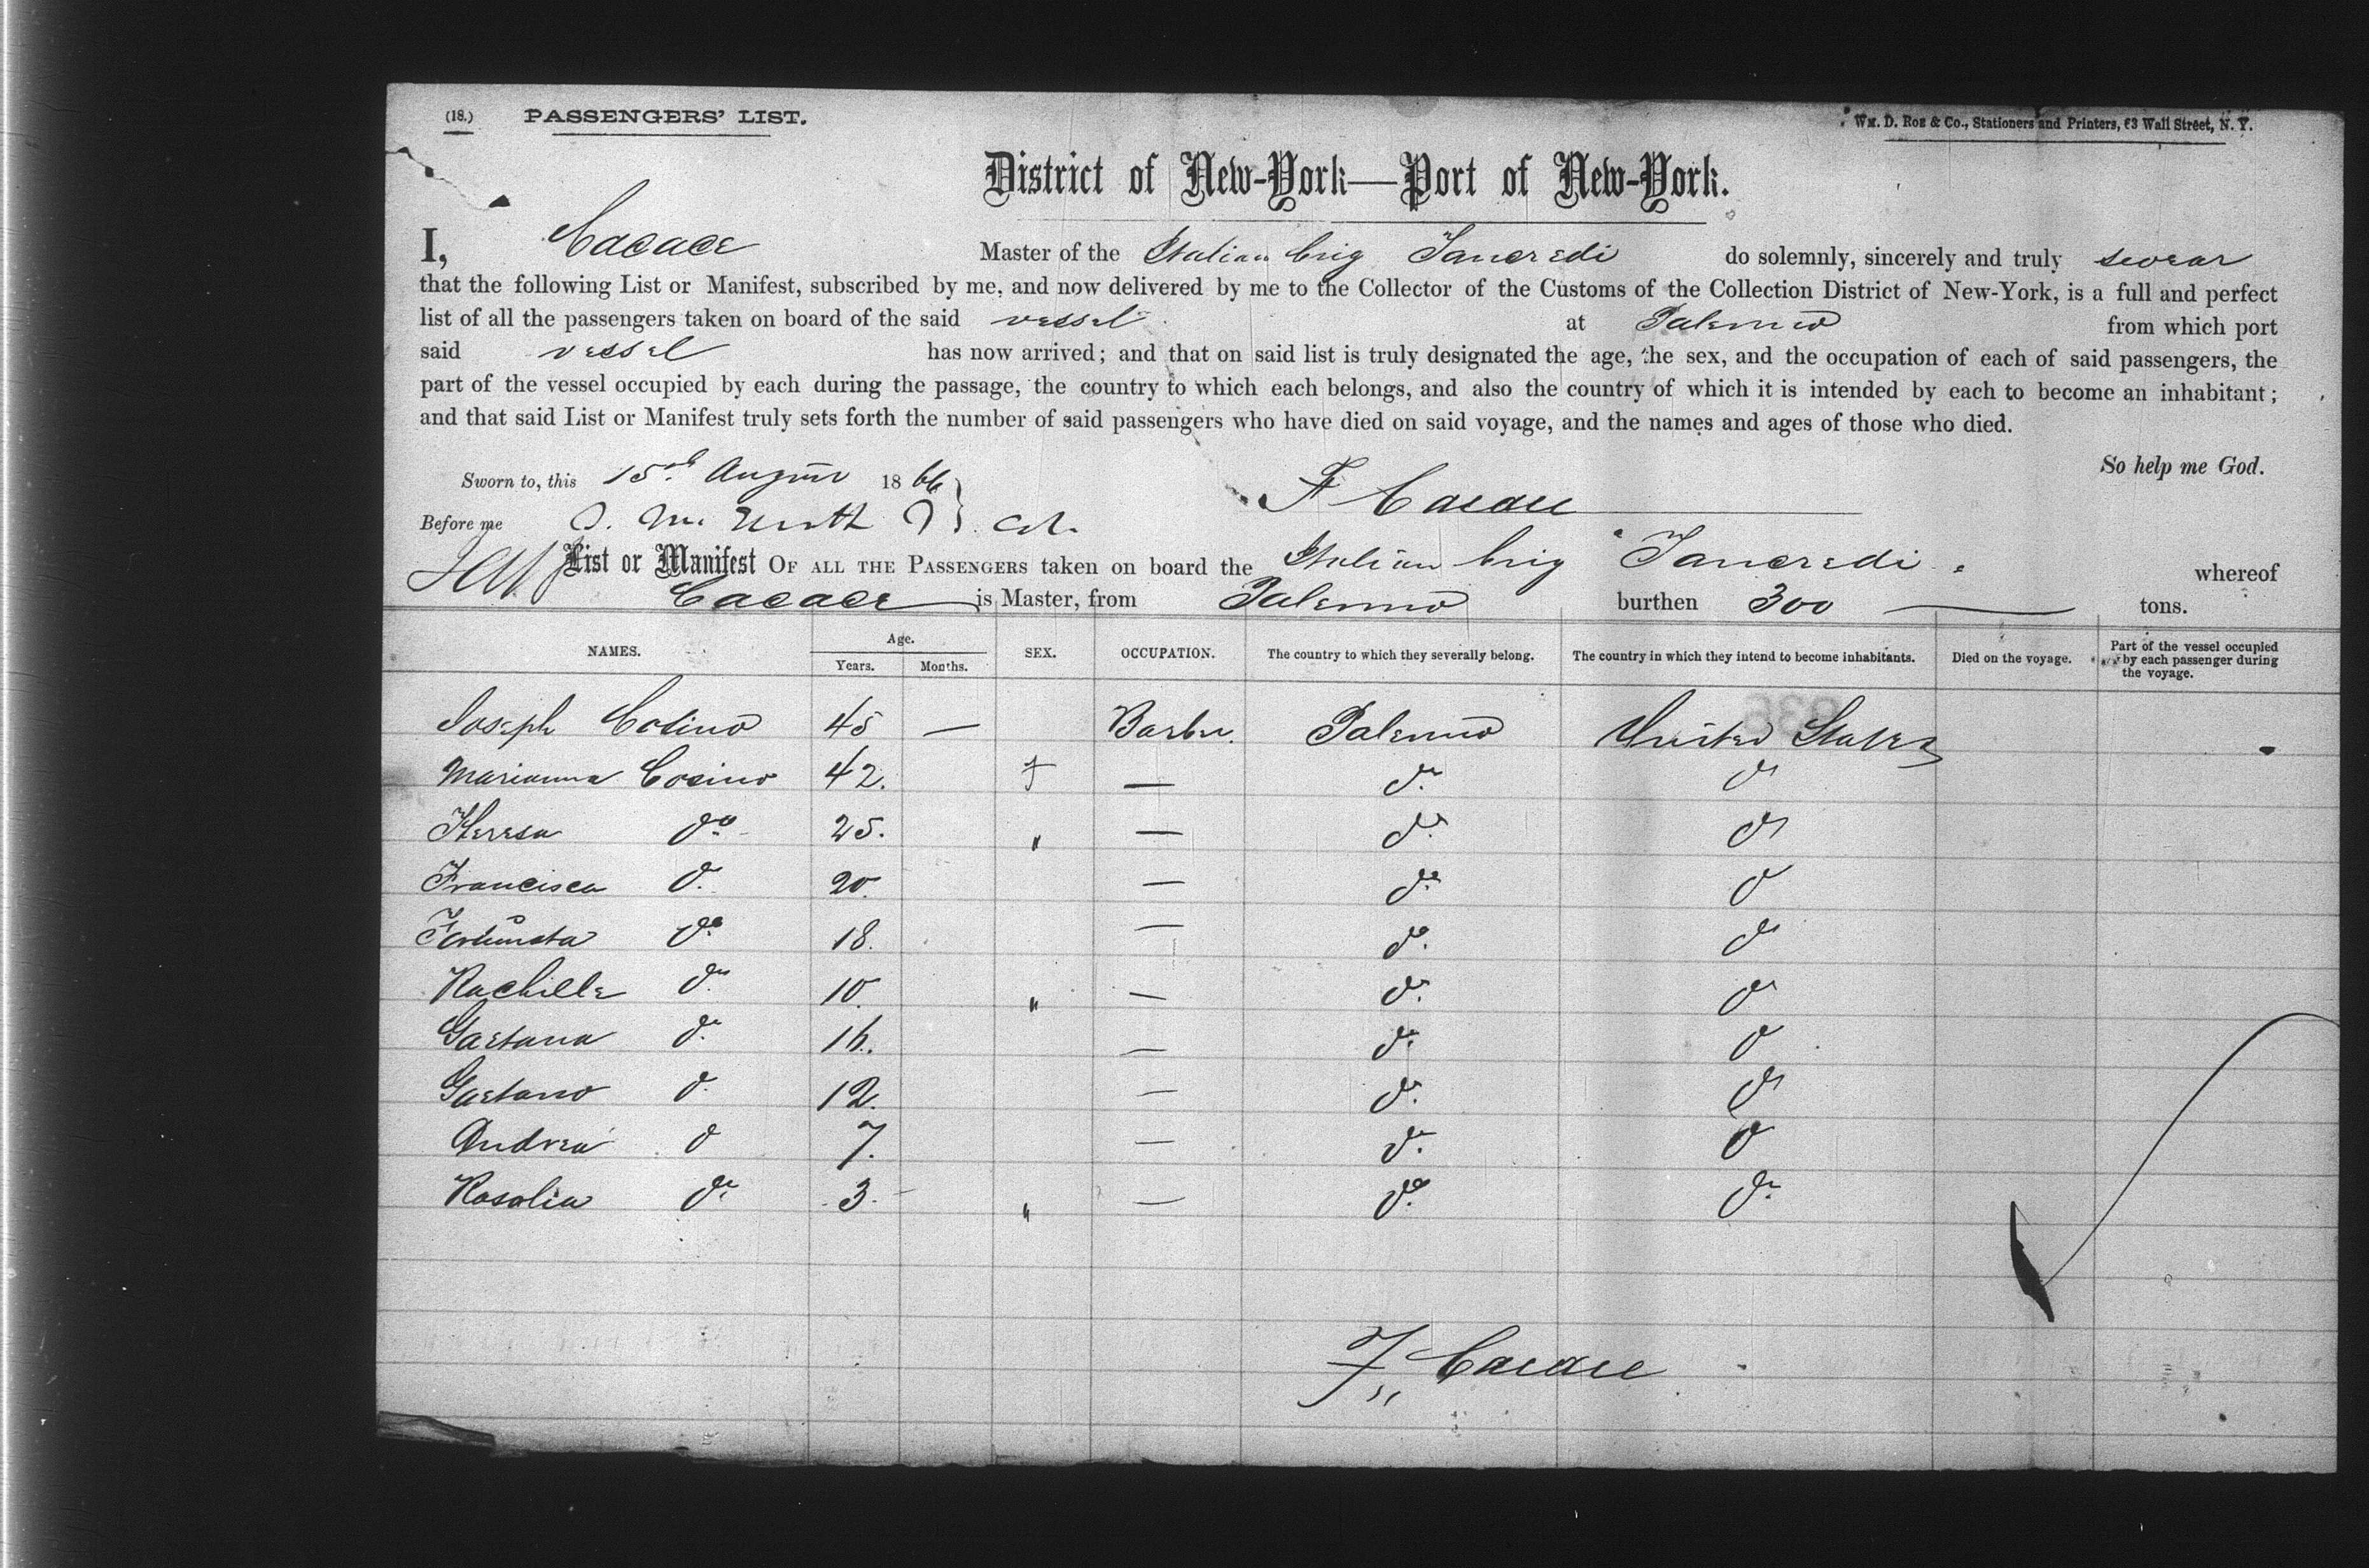 (18.) PASSENGERS' LIST. Wm. D. Roe & Co., Stationers and Printers, 63 Wall Street, N. Y.
District of New-York—Port of New-York.
I, Cacace Master of the Italian brig Tancredi do solemnly, sincerely and truly swear
that the following List or Manifest, subscribed by me, and now delivered by me to the Collector of the Customs of the Collection District of New-York, is a full and perfect
list of all the passengers taken on board of the said vessel at Palermo from which port
said vessel has now arrived; and that on said list is truly designated the age, the sex, and the occupation of each of said passengers, the
part of the vessel occupied by each during the passage, the country to which each belongs, and also the country of which it is intended by each to become an inhabitant;
and that said List or Manifest truly sets forth the number of said passengers who have died on said voyage, and the names and ages of those who died.
So help me God.
Sworn to, this 15th August 1866
F Cacace
Before me
List or Manifest OF ALL THE PASSENGERS taken on board the Italian brig Tancredi. whereof
Cacace is Master, from Palermo burthen 300 tons.
NAMES. Age. Years. Months. SEX. OCCUPATION. The country to which they severally belong. The country in which they intend to become inhabitants. Died on the voyage. Part of the vessel occupied by each passenger during the voyage.
Joseph Cosino 45 — Barber. Palermo United States
Marianna Cosino 42. f — do. do
Theresa do 25. " — do. do
Francisca do. 20. — do. do
Fortunata do. 18. — do. do
Rachille do. 10. " — do. do
Gaetana do. 16. — do. do
Gaetano do. 12. — do. do
Andrea do 7. — do. do
Rosalia do. 3. " — do. do.
F. Cacace